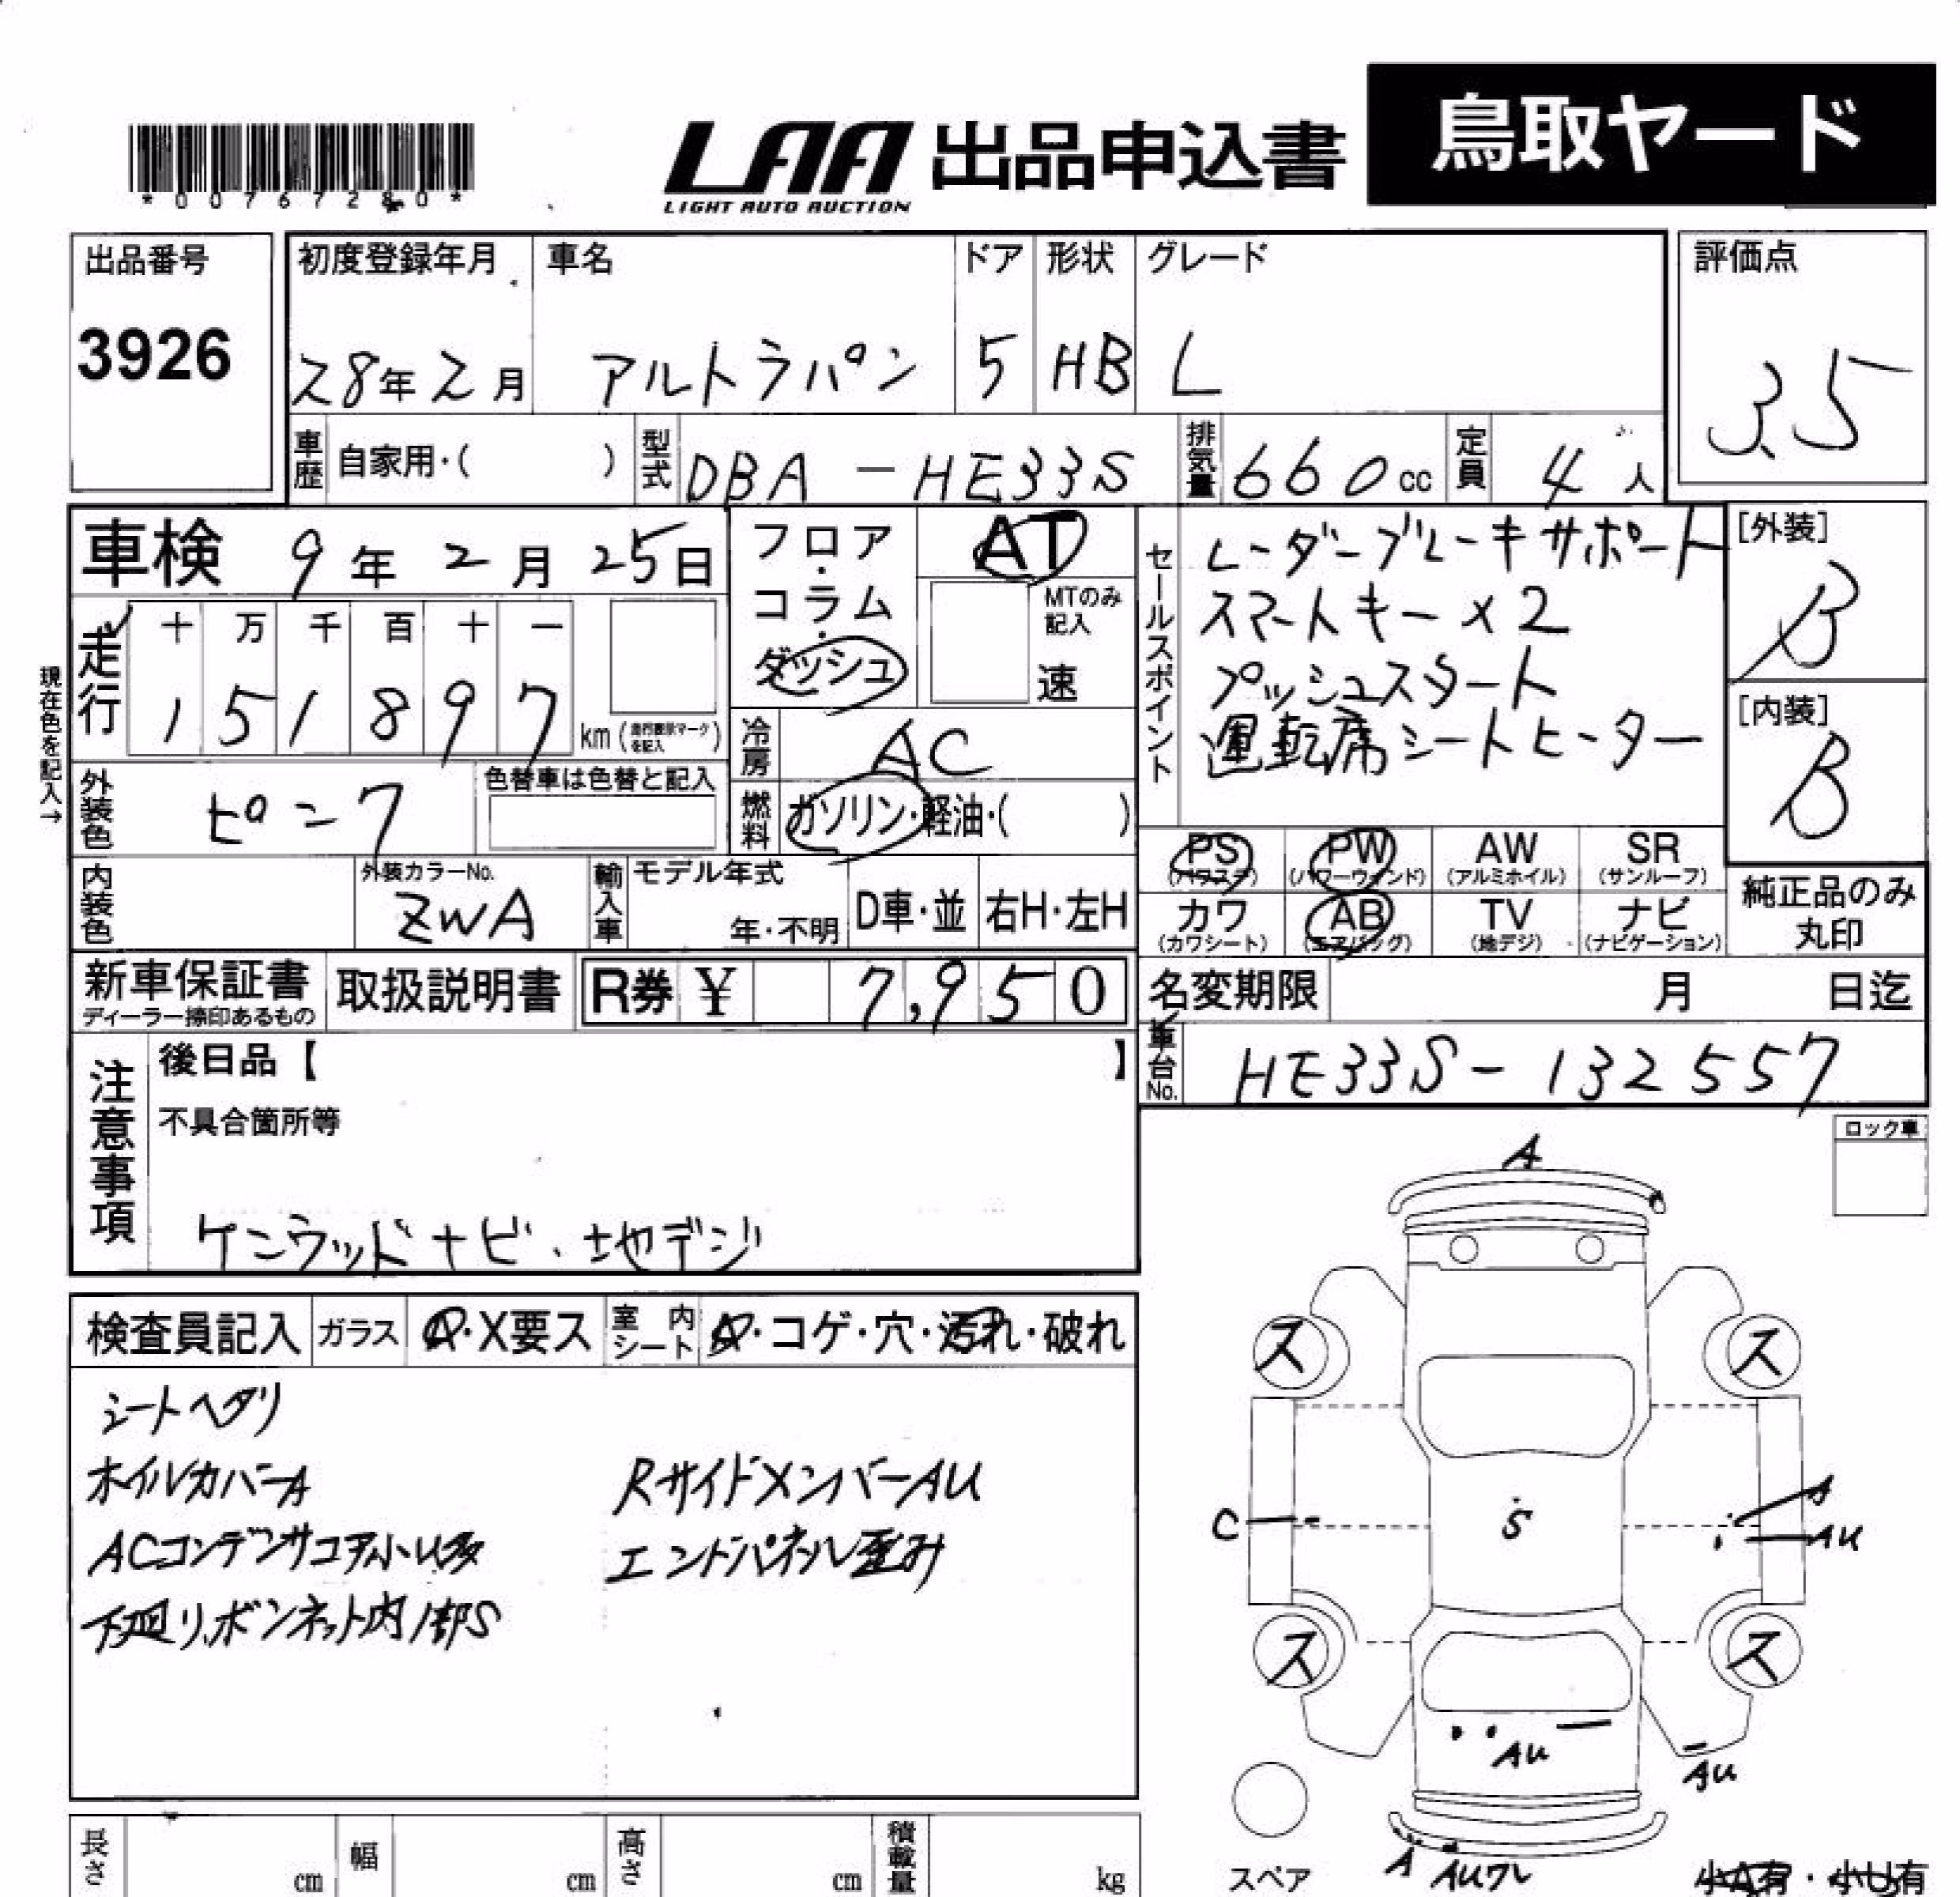 *00767280*
LAA 出品申込書 鳥取ヤード
LIGHT AUTO AUCTION
出品番号 初度登録年月 車名 ドア 形状 グレード 評価点
3926 28年2月 アルトラパン 5 HB L 3.5
車歴 自家用・( ) 型式 DBA-HE33S 排気量 660cc 定員 4人
車検 9年2月25日
フロア・コラム・ダッシュ
AT
MTのみ記入
速
セールスポイント
レーダーブレーキサポート
スマートキー×2
プッシュスタート
運転席シートヒーター
[外装]
B
[内装]
B
現在色を記入→
走行 十 万 千 百 十 一
1 5 1 8 9 7 km(走行表示マークを記入)
冷房 AC
外装色 ピンク 色替車は色替と記入
燃料 ガソリン・軽油・( )
PS PW AW SR
(パワステ) (パワーウィンド) (アルミホイル) (サンルーフ)
カワ AB TV ナビ
(カワシート) (エアバッグ) (地デジ) (ナビゲーション)
純正品のみ
丸印
内装色 外装カラーNo. ZWA 輸入車 モデル年式 年・不明 D車・並 右H・左H
新車保証書 取扱説明書 R券 ¥ 7,950
ディーラー捺印あるもの
名変期限 月 日迄
車台No. HE33S-132557
注意事項
後日品【 】
不具合箇所等
ケンウッドナビ、地デジ
ロック車
検査員記入 ガラス A・X要ス 室内シート A・コゲ・穴・汚れ・破れ
シートヘタリ
ホイルカバーA Rサイドメンバー AU
ACコンデンサコア小U多 エンドパネル歪み
下廻り、ボンネット内1部S
A
ス ス
C S A
AU
ス ス
AU AU
A AUワレ
スペア
小A有・小U有
長さ cm 幅 cm 高さ cm 積載量 kg